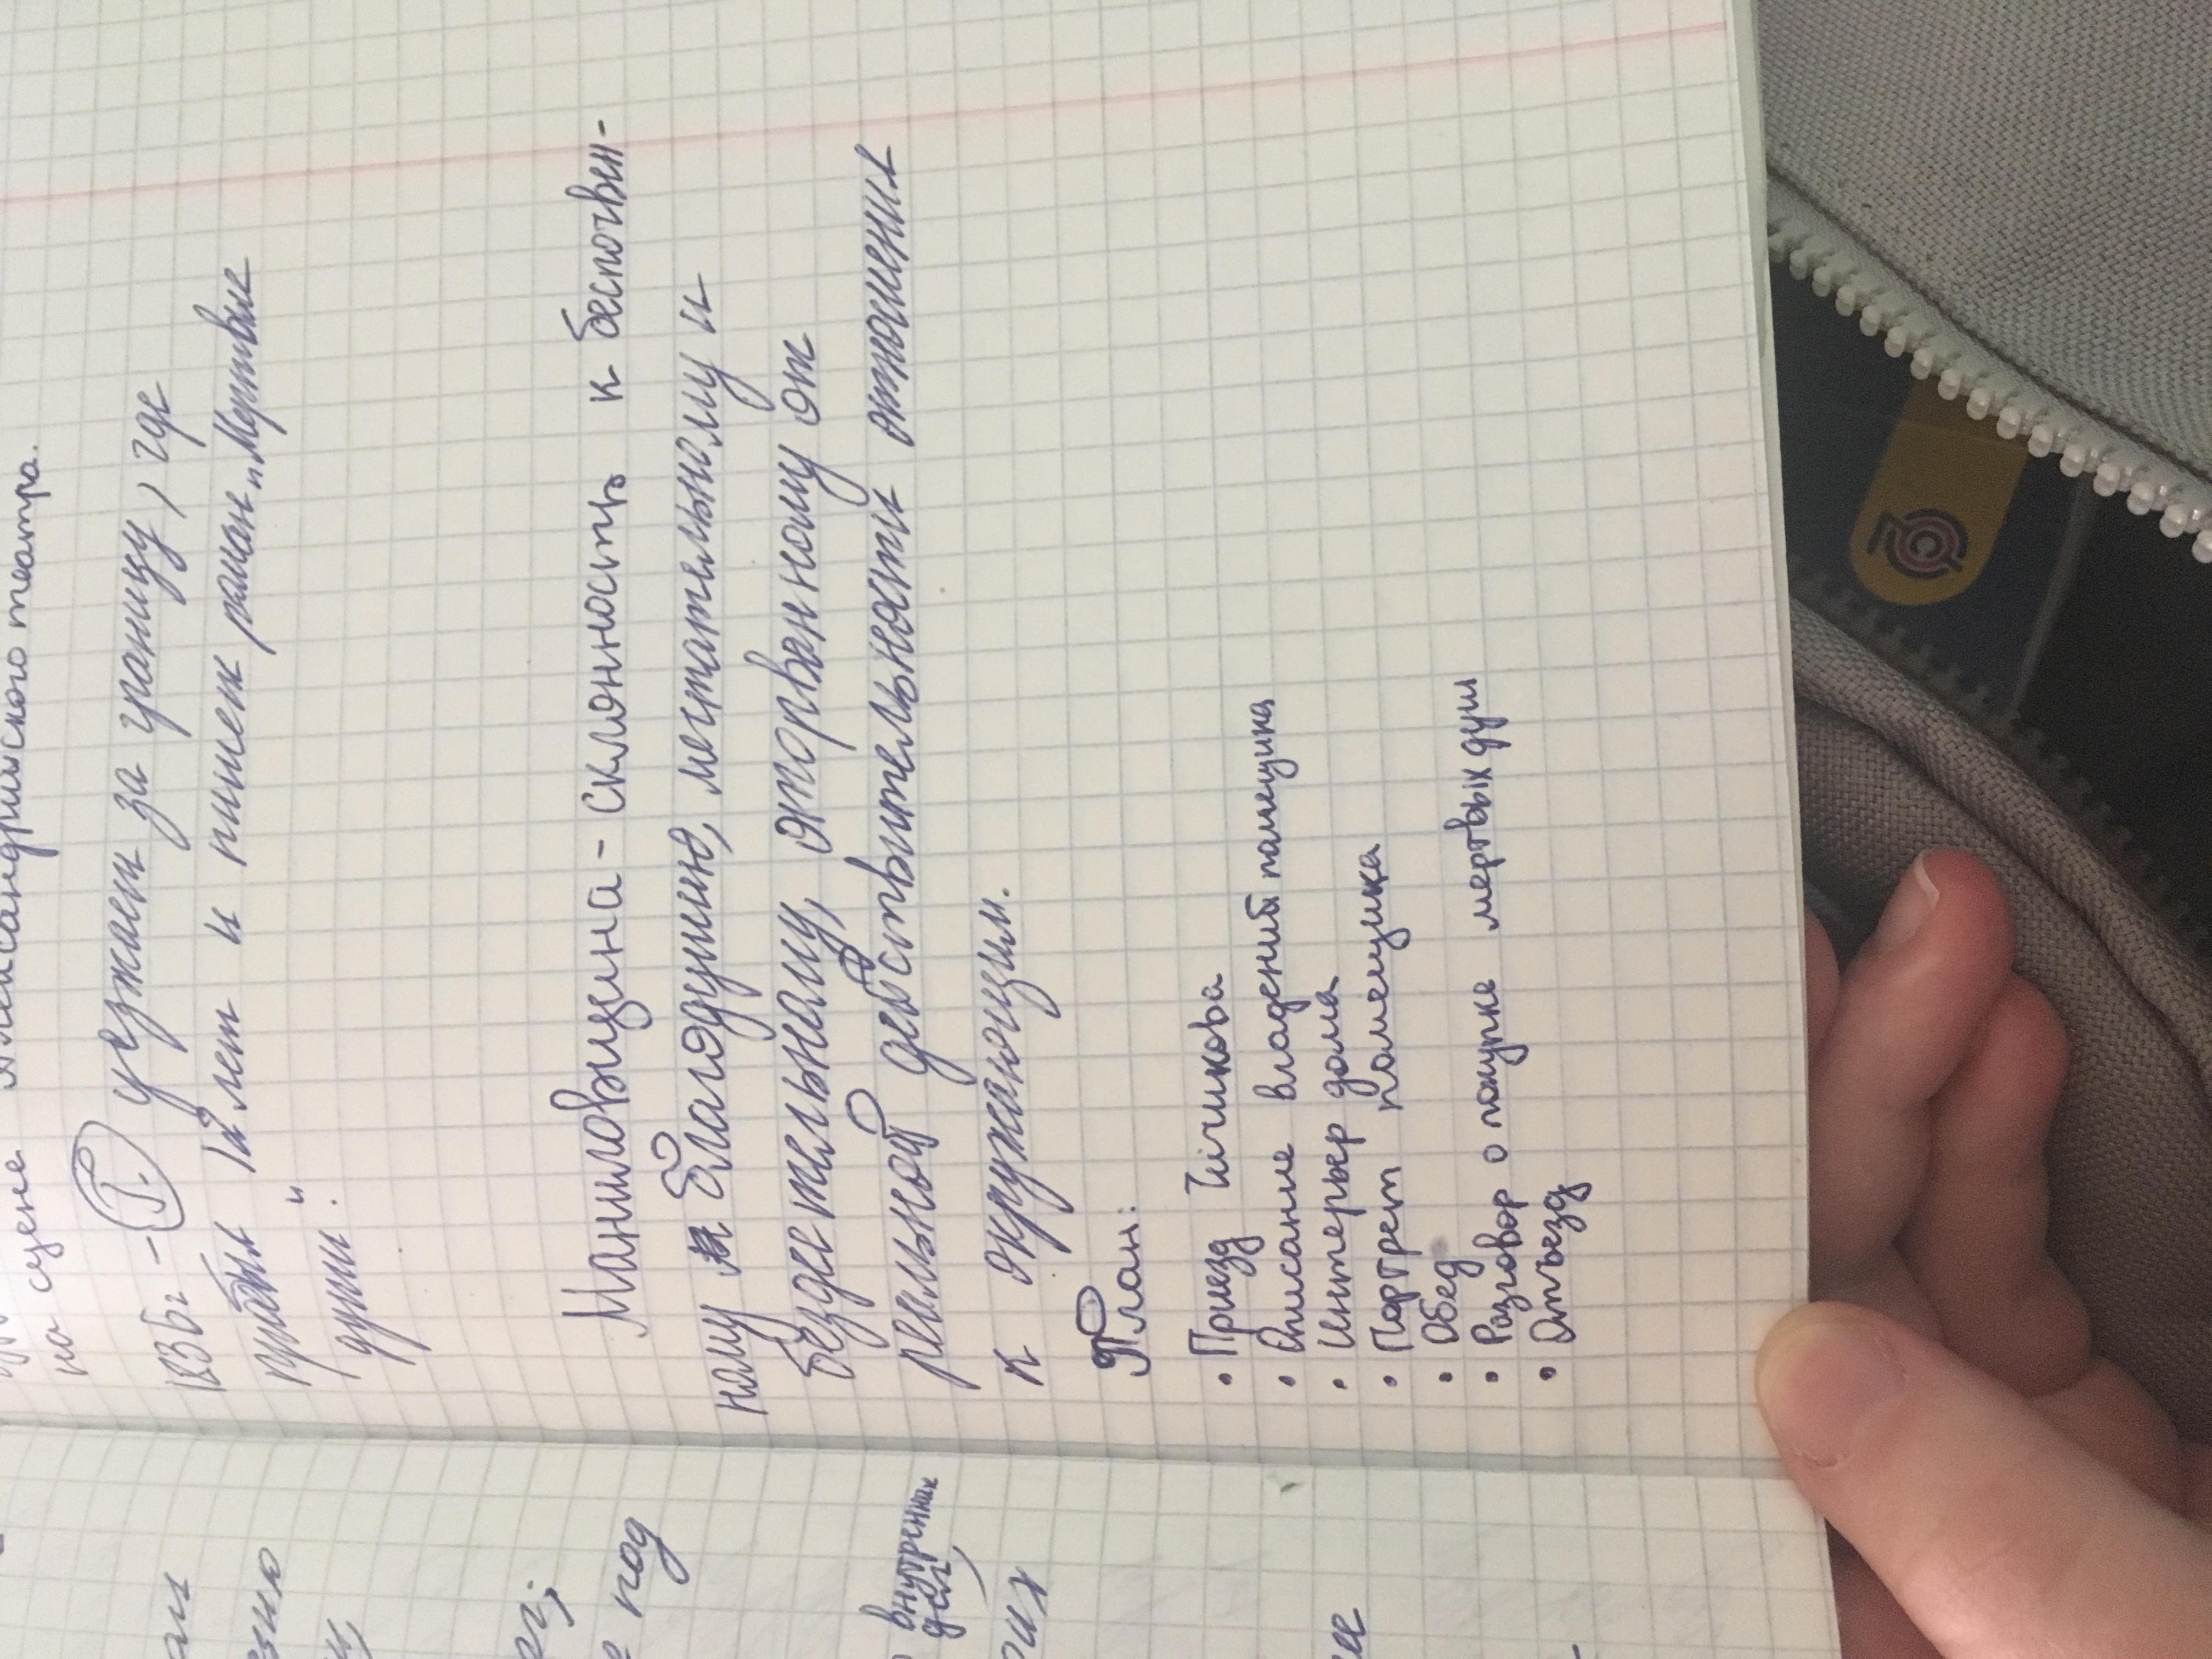 на сцене Александрийского театра.
1836г - Г. уезжает за границу, где
пробыл 12 лет и пишет роман „Мертвые
души".
Маниловщина - склонность к беспочвен-
ному благодушию, мечтательному и
бездеятельному, оторванному от
реальной действительности отношения
к окружающим.
План:
• Приезд Чичикова
• Описание владений помещика
• Интерьер дома
• Портрет помещика
• Обед
• Разговор о покупке мертвых душ
• Отъезд
под
внутренних
дел